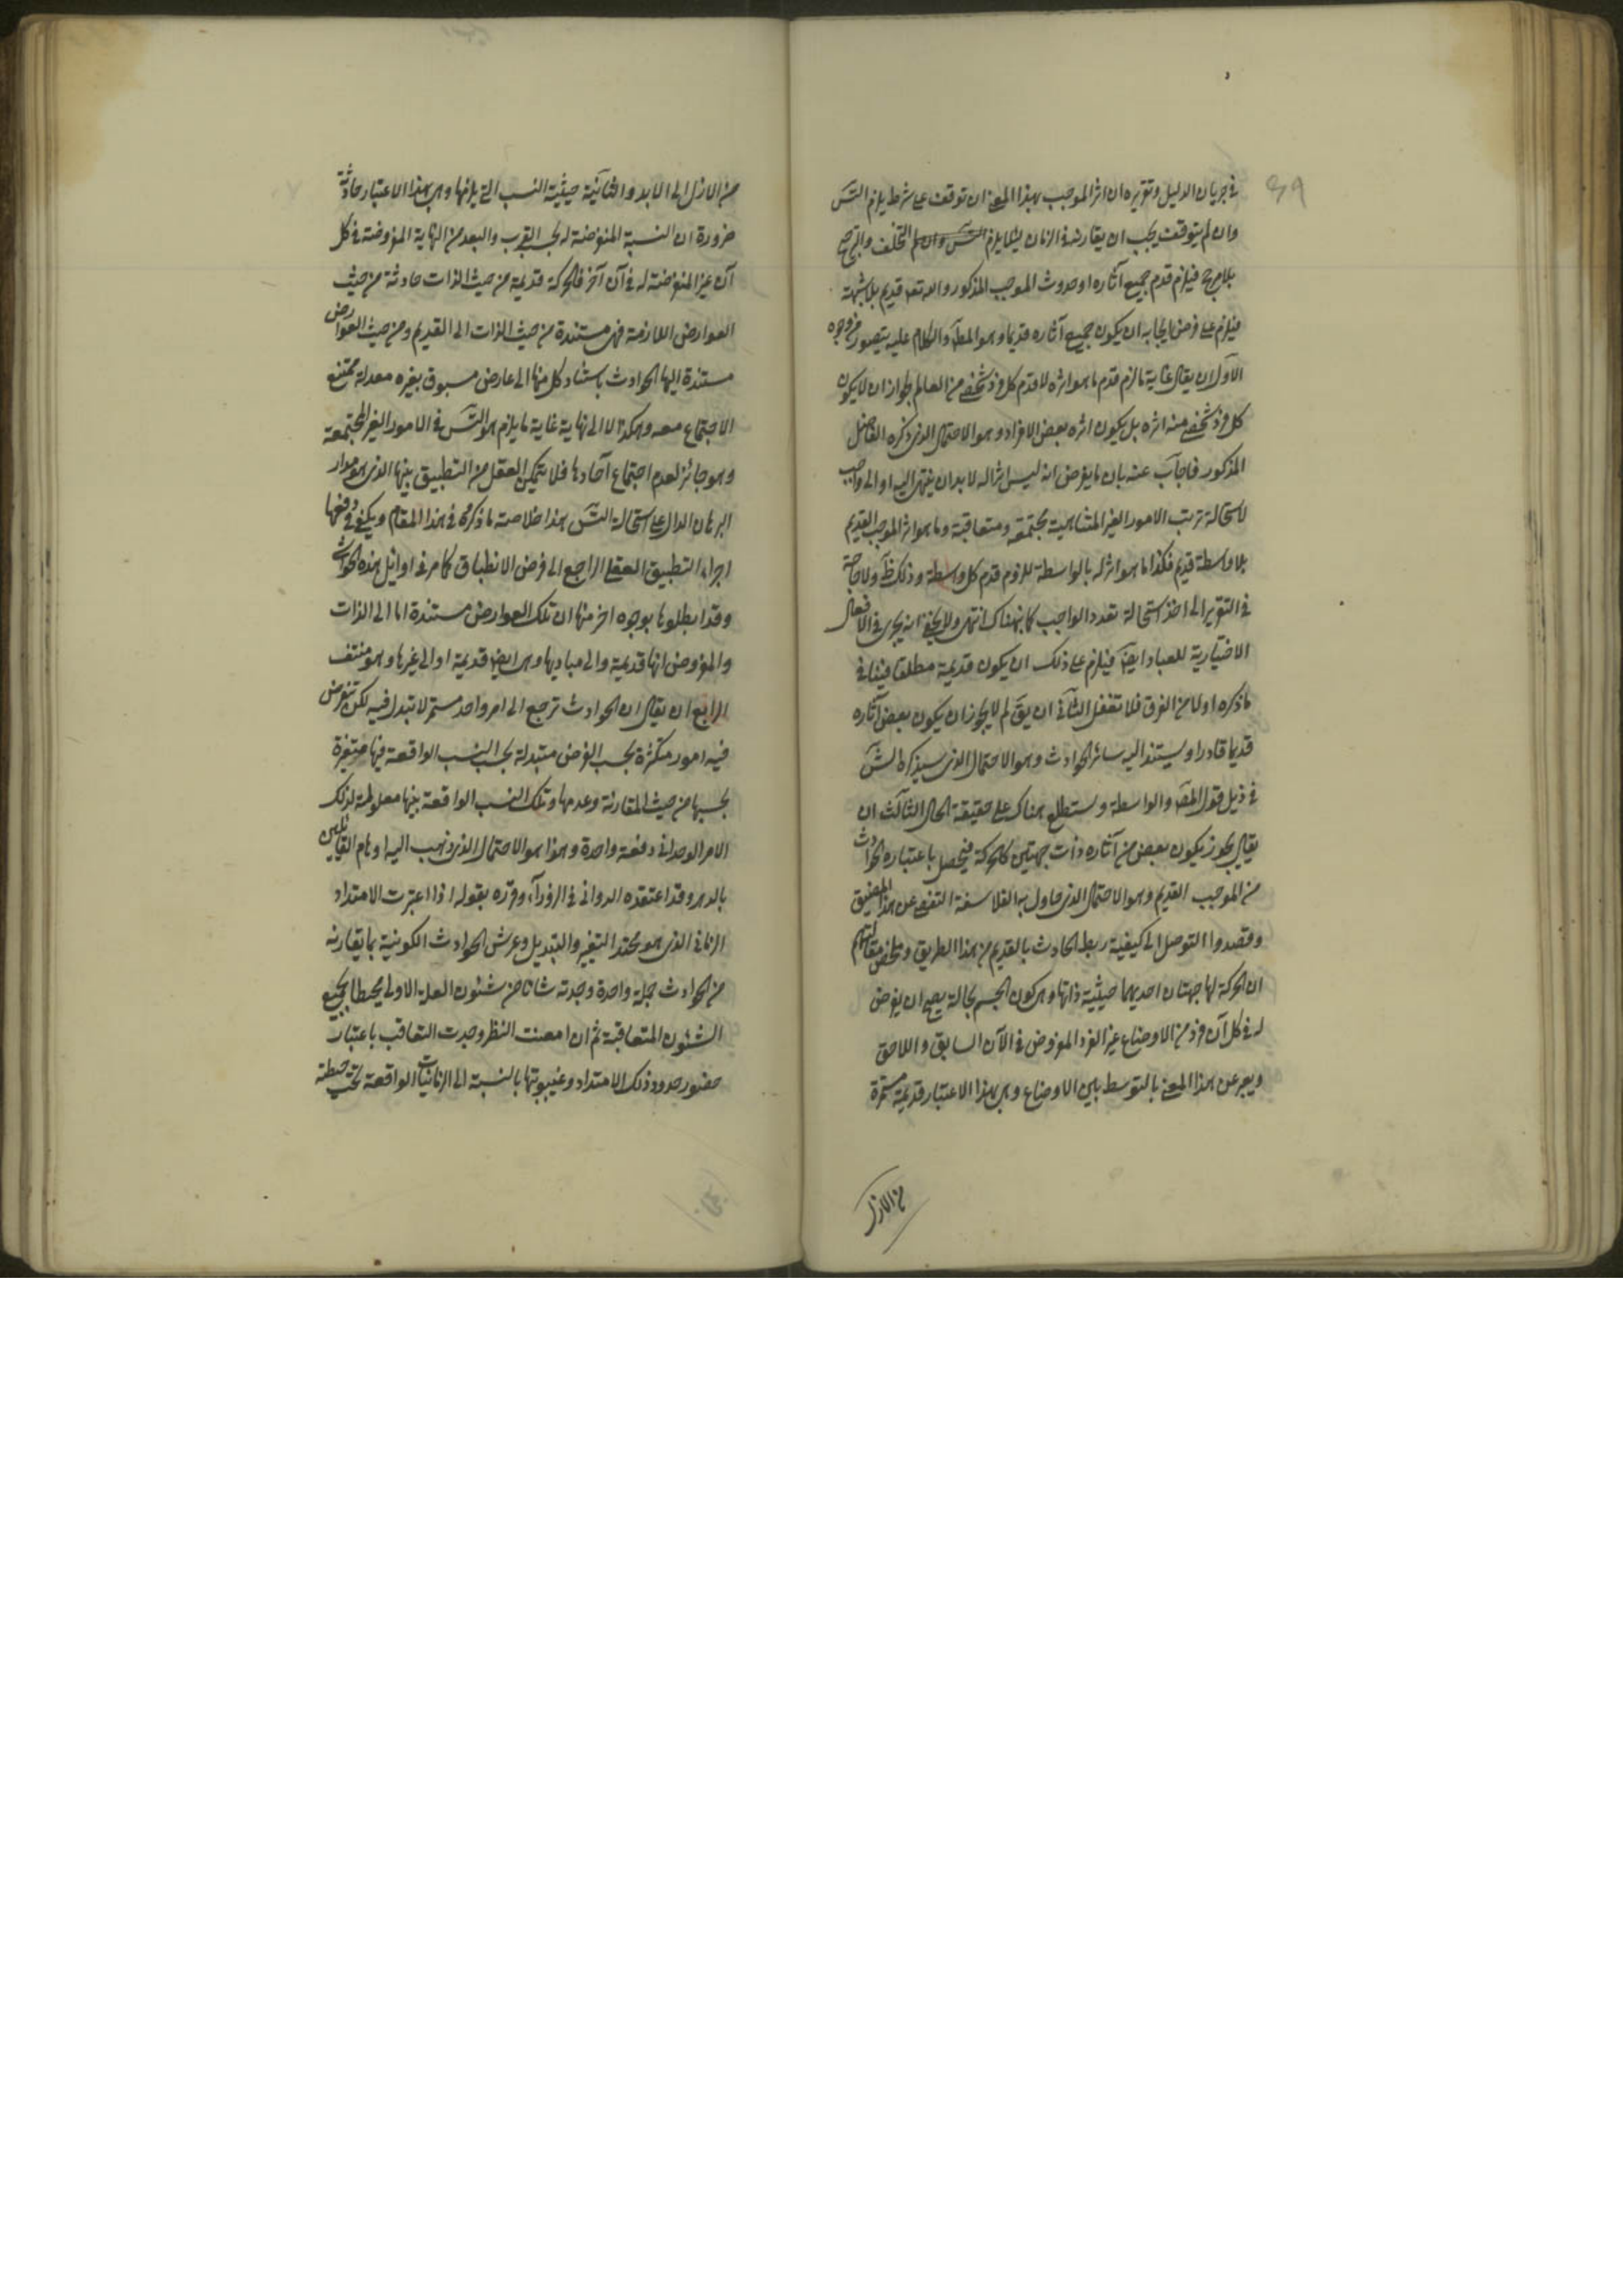 ٤٩
في جريان الدليل وتقريره ان اثر الموجب بهذا المعنى ان توقف على شرط يلزم التس
وان لم يتوقف يجب ان يقارنه في الزمان لئلا يلزم التس وان لم التخلف والترجيح
بلا مرجح فيلزم قدم جميع آثاره او حدوث الموجب المذكور والله تعه قديم بلا شبهة
فيلزم على فرض ايجابه ان يكون جميع آثاره قديما وهو المط والكلام عليه يتصور من وجوه
الاول ان يقال غاية ما لزم قدم ما هو اثره لا قدم كل فرد شخصي من العالم لجواز ان لا يكون
كل فرد شخصي منه اثره بل يكون اثره بعض الافراد وهو الاحتمال الذي ذكره الفاضل
المذكور فاجاب عنه بان ما يفرض انه ليس اثرا له لا بد ان ينتهي اليه او الى واجب
لاستحالة ترتب الامور الغير المتناهية مجتمعة ومتعاقبة وما هو اثر الموجب القديم
بلا واسطة قديم فكذا ما هو اثر له بالواسطة للزوم قدم كل واسطة وذلك ظ ولا حاجة
في التقرير الى اخذ استحالة تعدد الواجب كما نبه هناك انتهى ولا يخفى انه يجري في الافعال
الاختيارية للعباد ايض فيلزم على ذلك ان يكون قديمة مطلقا فينافي
ما ذكره اولا من الفرق فلا تغفل الثاني ان يق لم لا يجوز ان يكون بعض آثاره
قديما قادرا ويستند اليه سائر الحوادث وهو الاحتمال الذي سيذكره الش
في ذيل قول المص والواسطة وستطلع هناك على حقيقة الحال الثالث ان
يقال يجوز يكون بعض من آثاره ذات جهتين كالحركة فيحصل باعتباره الحوادث
من الموجب القديم وهو الاحتمال الذي حاول به الفلاسفة التفصي عن هذا المضيق
وقصدوا التوصل الى كيفية ربط الحادث بالقديم من هذا الطريق وملخص مقالتهم
ان الحركة لها جهتان احديهما حيثية ذاتها وهي كون الجسم بحالة يصح ان يفرض
له في كل آن فرد من الاوضاع غير الفرد المفروض في الآن السابق واللاحق
ويعبر عن هذا المعنى بالتوسط بين الاوضاع وهي بهذا الاعتبار قديمة مستمرة
من الازل
من الازل الى الابد والثانية حيثية النسب التي يلزمها وهي بهذا الاعتبار حادثة
ضرورة ان النسبة المفروضة له بحسب القرب والبعد من النهاية المفروضة في كل
آن غير المفروضة له في آن آخر فالحركة قديمة من حيث الذات حادثة من حيث
العوارض اللازمة فهي مستندة من حيث الذات الى القديم ومن حيث العوارض
مستندة اليها الحوادث باستناد كل منها الى عارض مسبوق بغيره معدله ممتنع
الاجتماع معه وهكذا لا الى نهاية غاية ما يلزم هو التس في الامور الغير المجتمعة
وهو جائز لعدم اجتماع آحادها فلا يتمكن العقل من التطبيق بينها الذي هو مدار
البرهان الدال على استحالة التس هذا خلاصة ما ذكره في هذا المقام ويكفي في دفعها
اجراء التطبيق العقلي الراجع الى فرض الانطباق كما مر في اوائل هذه الحواشي
وقد ابطلوها بوجوه اخر منها ان تلك العوارض مستندة اما الى الذات
والمفروض انها قديمة والى مباديها وهي ايض قديمة او الى غيرها وهو منتف
الرابع ان يقال ان الحوادث ترجع الى امر واحد مستمر لا تبدل فيه لكن تفرض
فيه امور متكثرة بحسب الفرض متبدلة بحسب النسب الواقعة فيها متغيرة
بحسبها من حيث المقارنة وعدمها وتلك النسب الواقعة بينها معلولة لذلك
الامر الوحداني دفعة واحدة وهذا هو الاحتمال الذي ذهب اليه اوهام القائلين
بالدهر وقد اعتقده الدواني في الزوراء وقرره بقوله اذا اعتبرت الامتداد
الزماني الذي هو محتد التغير والتبديل وعرش الحوادث الكونية بما يقارنه
من الحوادث جملة واحدة وجدته شانا من شئون العلة الاولى محيطا بجميع
الشئون المتعاقبة ثم ان امعنت النظر وجدت التعاقب باعتبار
حضور حدود ذلك الامتداد وغيبوبتها بالنسبة الى الزمانيات الواقعة تحت حيطته